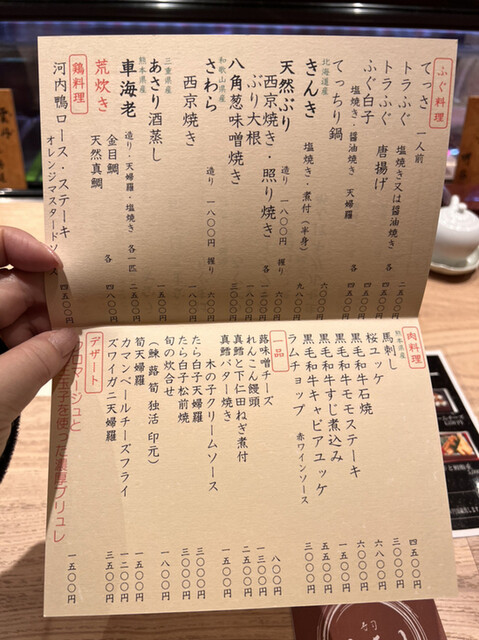 ふぐ料理
てっさ 一人前
トラふぐ 塩焼き又は醤油焼き
トラふぐ 唐揚げ
ふぐ白子
塩焼き・醤油焼き 天婦羅
てっちり鍋 六〇〇〇
北海道産
きんき 塩焼き・煮付(半身) 九八〇〇
天然ぶり 造り 一八〇〇円 握り
西京焼き・照り焼き 各
ぶり大根
八角葱味噌焼き
和歌山県産
さわら 造り 一八〇〇円 握り 六〇〇円
西京焼き
三重県産
あさり酒蒸し
熊本県産
車海老 造り・天婦羅・塩焼き 各一匹 二五〇〇円
荒炊き 金目鯛 各 四八〇〇円
天然真鯛
鶏料理
河内鴨ロース・ステーキ 四五〇〇円
オレンジマスタードソース
肉料理
熊本県産
馬刺し 四五〇〇円
桜ユッケ 三〇〇〇円
黒毛和牛石焼 六八〇〇円
黒毛和牛モモステーキ 六〇〇〇円
黒毛和牛すじ煮込み 一五〇〇円
黒毛和牛キャビアユッケ 五〇〇〇円
ラムチョップ 赤ワインソース 三〇〇〇円
一品
蕗味噌チーズ 八〇〇円
れんこん饅頭 一三〇〇円
真鱈と下仁田ねぎ煮付 二五〇〇円
真鱈バター焼き 一五〇〇円
木の子クリームソース
たら白子天婦羅 三〇〇〇円
たら白子松前焼 三〇〇〇円
旬の炊合せ 一八〇〇円
(鰊 蕗 筍 独活 印元)
筍天婦羅 一五〇〇円
カマンベールチーズフライ 一二〇〇円
ズワイガニ天婦羅 三五〇〇円
デザート
フロマージュと
玉子を使った濃厚ブリュレ 一五〇〇円